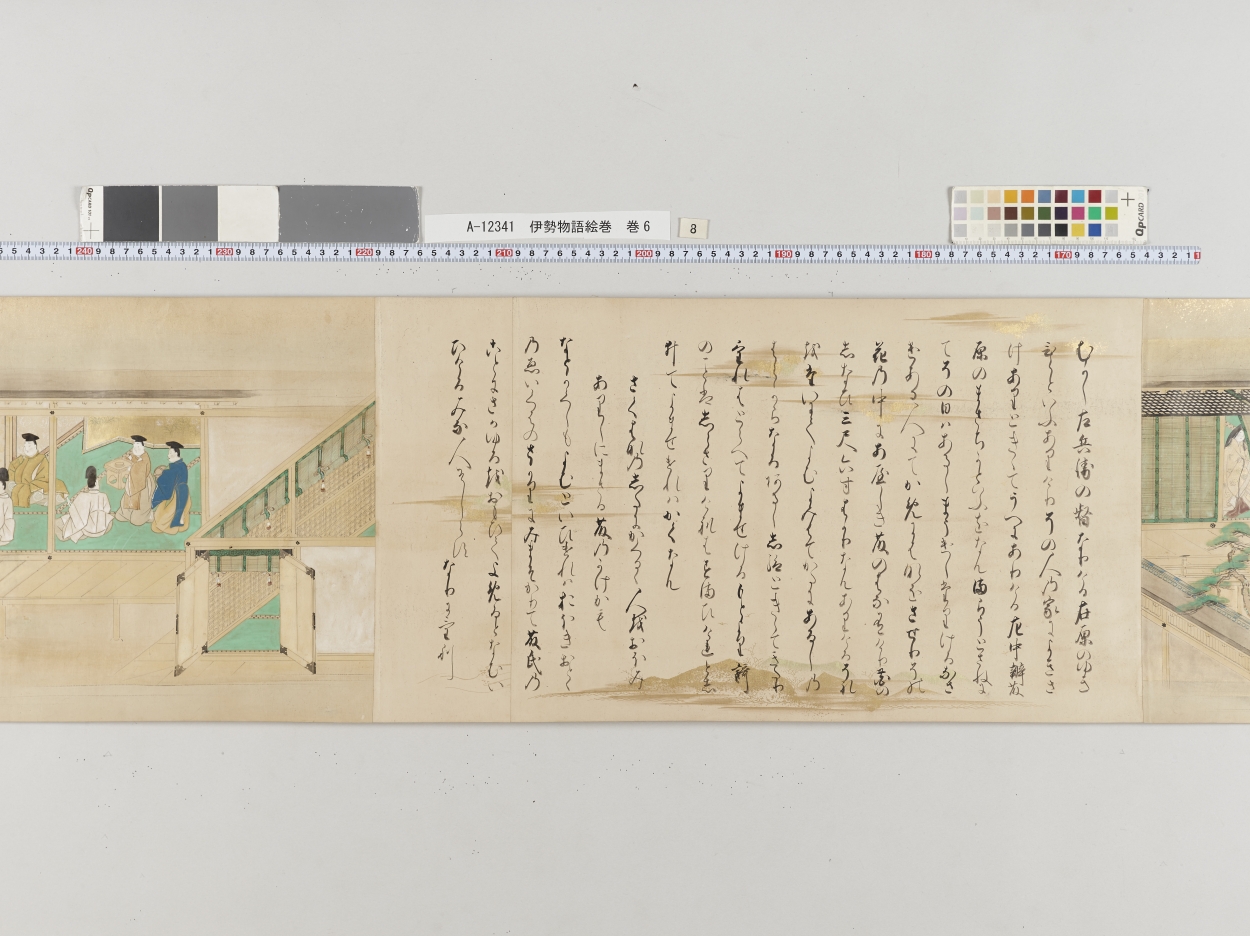 A-12341 伊勢物語絵巻 巻6
8
QPCARD
むかし左兵衛の督なりける在原のゆき
ひらといふありけりその人の家によきさ
けありときゝてうへにありける左中辨藤
原のまさちかといふをなんまらうとさねに
てその日はあるしまうけしたりけるなさ
けある人にてかめに花をさせりその
花の中にあやしき藤の花ありけり花の
しなひ三尺六寸はかりなんありけるそれ
を題にてよむよみはてかたにあるしの
はらからなるあるしし給ときゝてきたり
けれはとらへてよませけるもとより謌
のことはしらさりけれはすまひけれとし
ゐてよませけれはかくなん
さく花のしたにかくるゝ人をおほみ
ありしにまさる藤のかけかも
なとかくしもよむといひけれはおほきおとゝ
のゑい花のさかりにみまそかりて藤氏の
ことにさかゆるをおもひてよめるとなむい
ひけるみな人そしらす
なりにけり